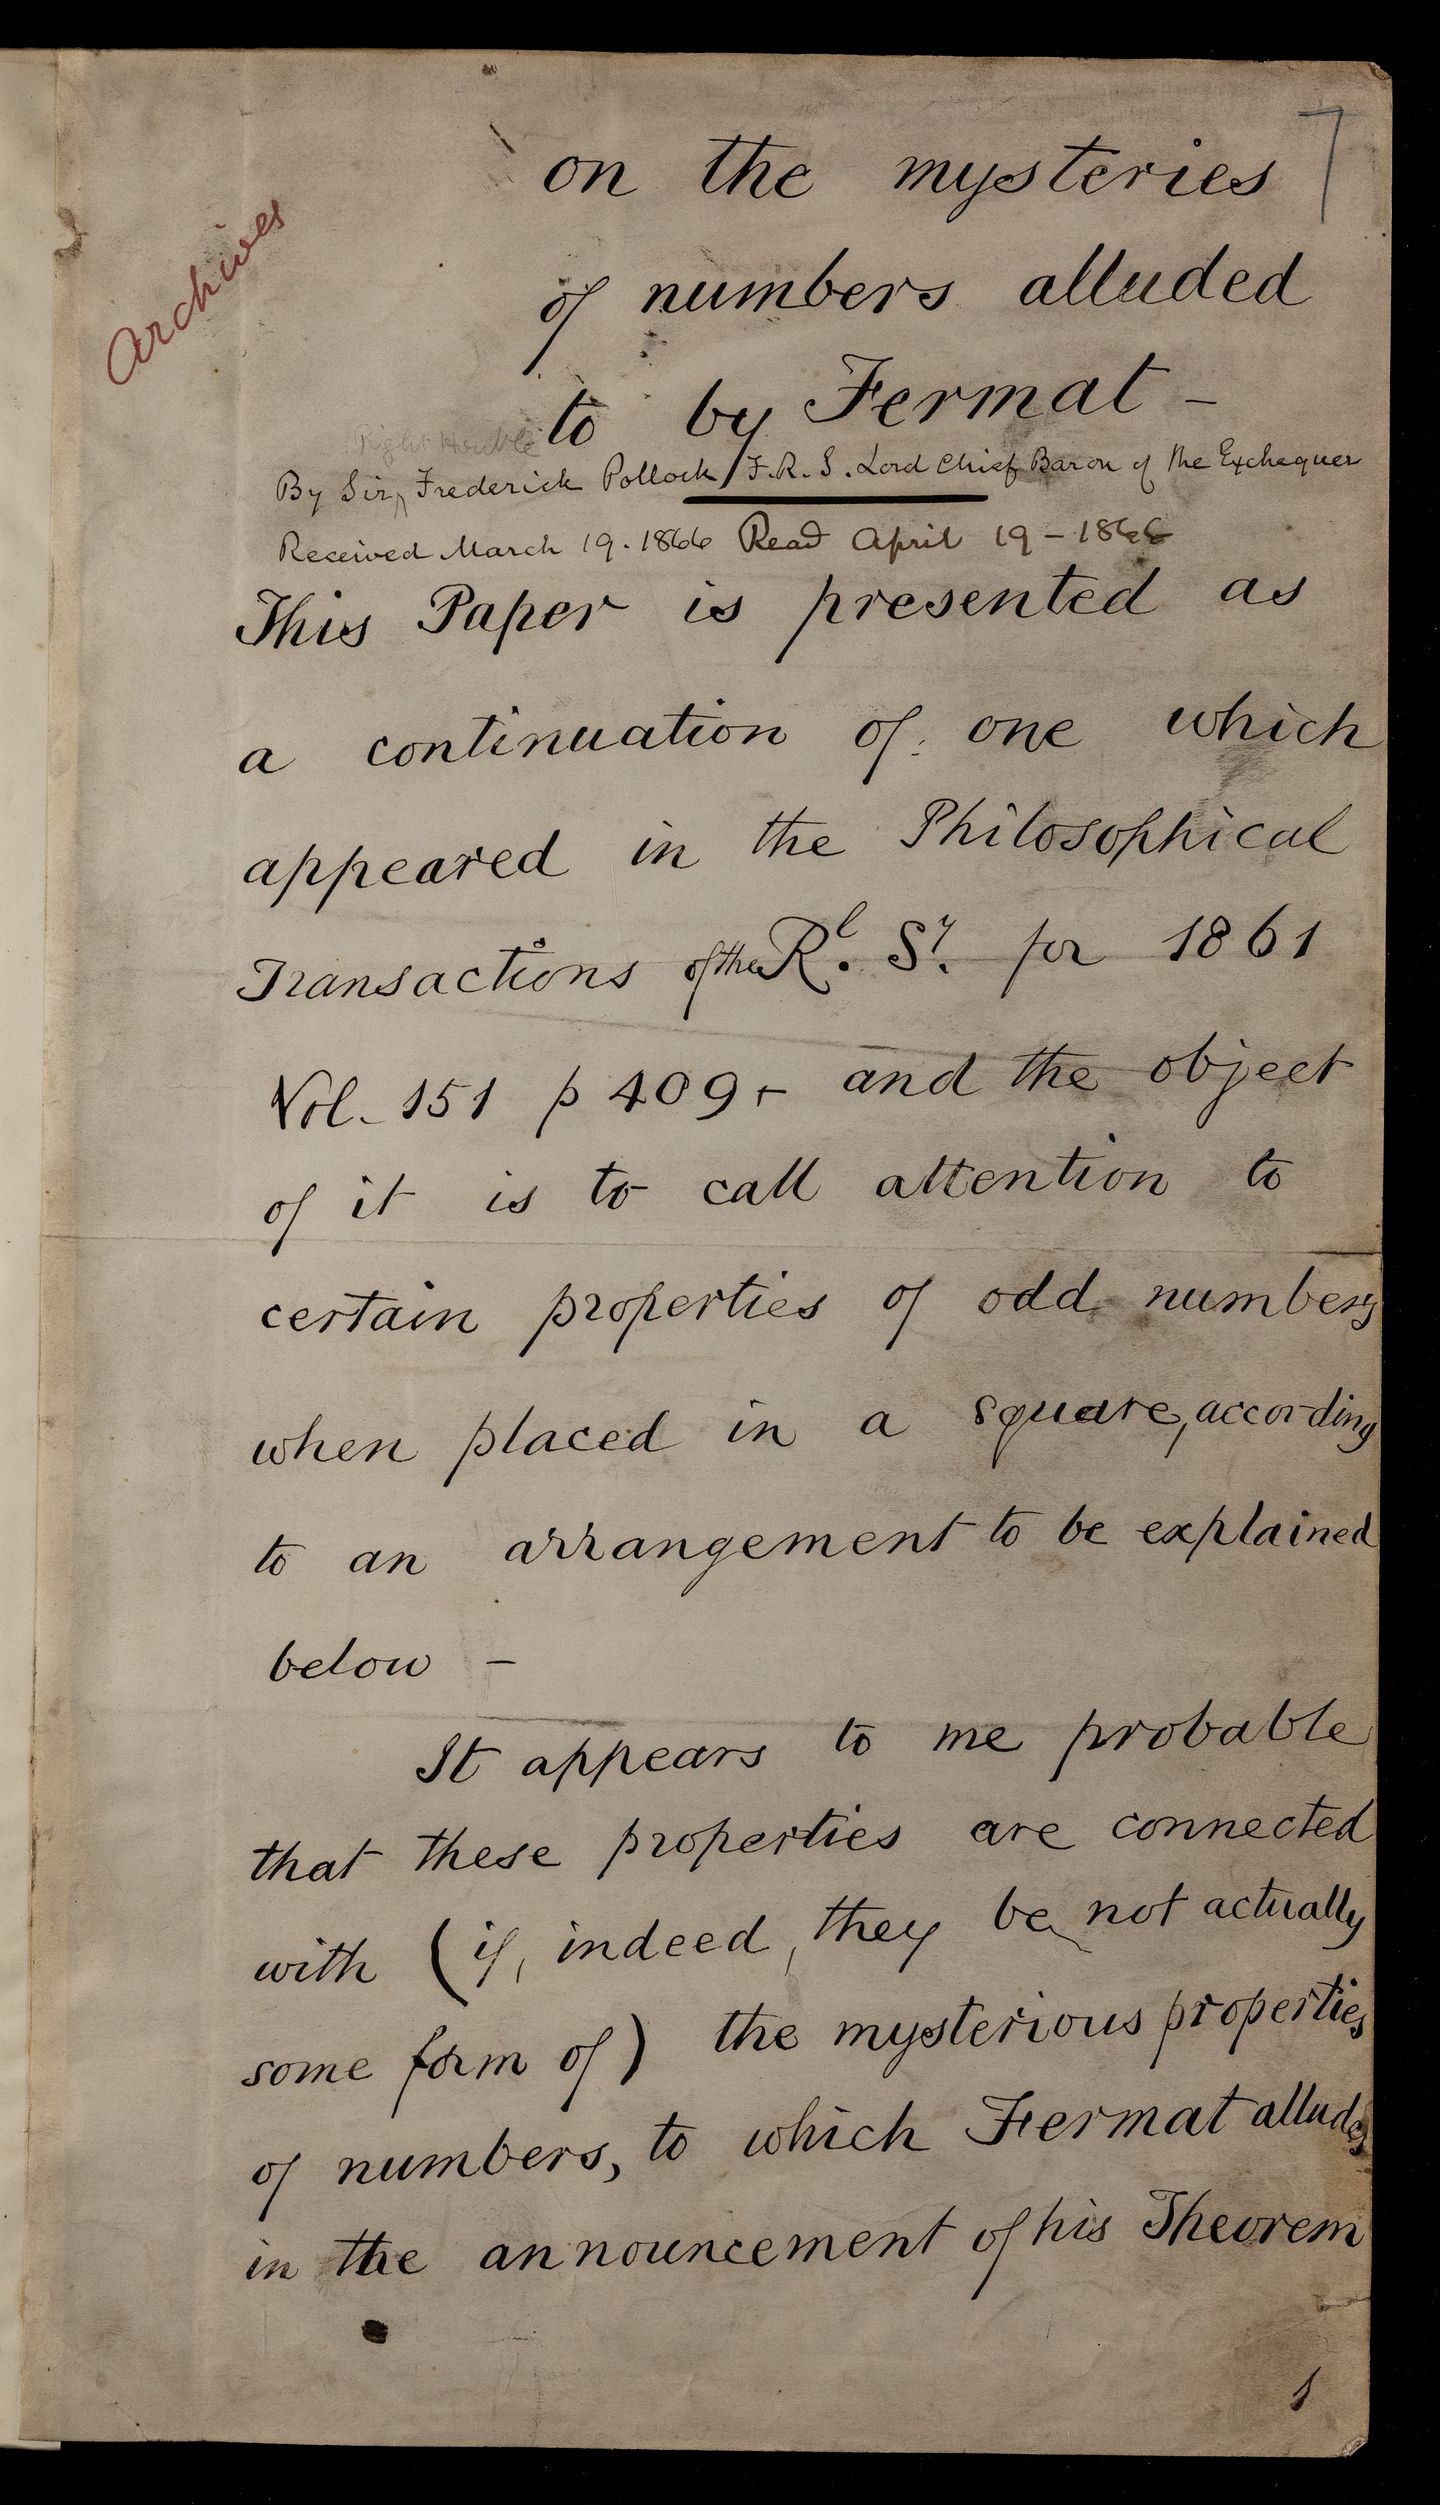 7
Archives
on the mysteries
of numbers alluded
to by Fermat –
Right Honble
By Sir, Frederick Pollock, F.R.S. Lord Chief Baron of the Exchequer
Received March 19. 1866 Read April 19 – 1866
This Paper is presented as
a continuation of one which
appeared in the Philosophical
Transactions of the Rl. Sy. for 1861
Vol. 151 p 409 – and the object
of it is to call attention to
certain properties of odd numbers
when placed in a square, according
to an arrangement to be explained
below –
It appears to me probable
that these properties are connected
with (if, indeed, they be not actually
some form of) the mysterious properties
of numbers, to which Fermat alludes
in the announcement of his Theorem
1